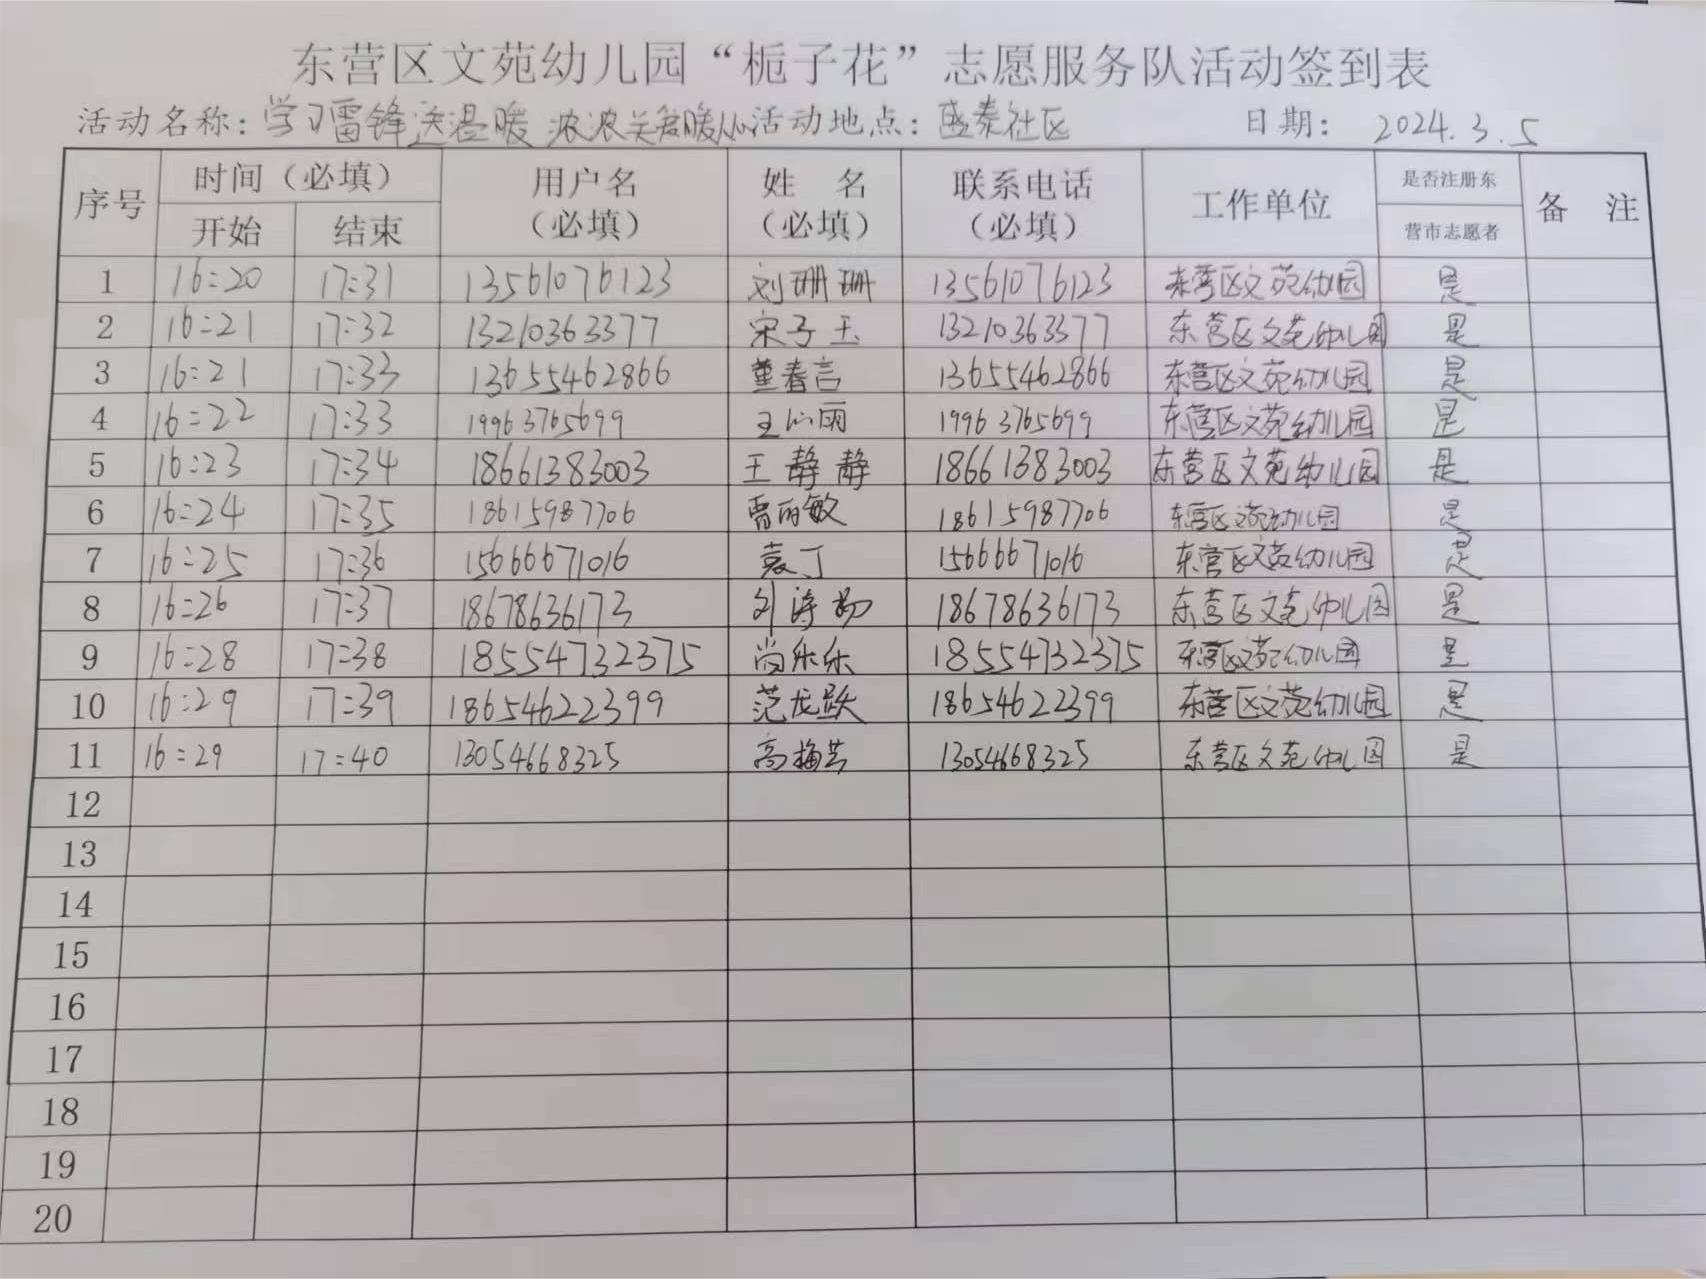 东营区文苑幼儿园“栀子花”志愿服务队活动签到表
活动名称：学习雷锋送温暖 浓浓关爱暖人心 活动地点：盛泰社区 日期：2024.3.5
序号 时间（必填） 用户名（必填） 姓名（必填） 联系电话（必填） 工作单位 是否注册东营市志愿者 备注
开始 结束
1 16:20 17:31 13561076123 刘珊珊 13561076123 东营区文苑幼儿园 是
2 16:21 17:32 13210363377 宋子玉 13210363377 东营区文苑幼儿园 是
3 16:21 17:33 13655462866 董春言 13655462866 东营区文苑幼儿园 是
4 16:22 17:33 19963765699 王心雨 19963765699 东营区文苑幼儿园 是
5 16:23 17:34 18661383003 王静静 18661383003 东营区文苑幼儿园 是
6 16:24 17:35 18615987706 丽敏 18615987706 东营区文苑幼儿园 是
7 16:25 17:36 15666671016 袁丁 15666671016 东营区文苑幼儿园 是
8 16:26 17:37 18678636173 刘 18678636173 东营区文苑幼儿园 是
9 16:28 17:38 18554732375 尚乐乐 18554732375 东营区文苑幼儿园 是
10 16:29 17:39 18654622399 范龙跃 18654622399 东营区文苑幼儿园 是
11 16:29 17:40 13054668325 高梅芸 13054668325 东营区文苑幼儿园 是
12
13
14
15
16
17
18
19
20